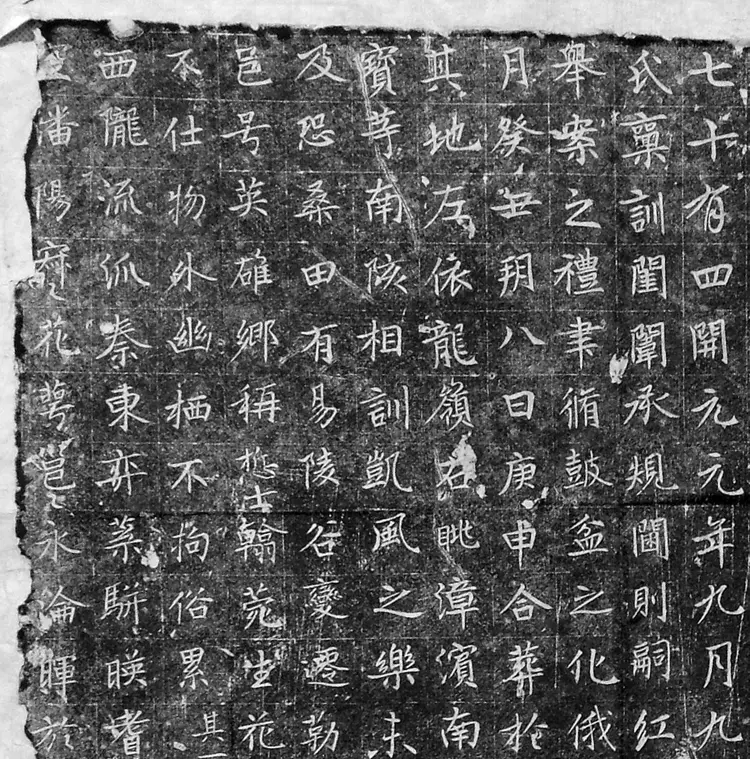 七十有四開元元年九月九
氏稟訓閨闈承規閫則嗣紅
舉案之禮聿脩鼓盆之化俄
月癸丑朔八日庚申合葬於
其地左依龍嶺右眺漳濱南
寶等南陔相訓凱風之樂未
及恐桑田有易陵谷變遷勒
邑号英雄鄉稱慜士翰苑生花
不仕物外幽栖不拘俗累其一
西隴流派秦東弈葉駢暎耆
潘陽寂〻花萼邕〻永淪暉於